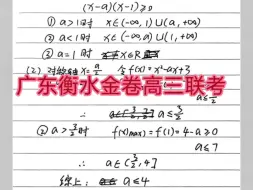 (x-a)(x-1)≥0
① a>1时 x∈(-∞,1)∪(a,+∞)
② a<1时 x∈(-∞,a)∪(1,+∞)
③ a=1时 x∈R
(2) 对称轴x=a/2 令f(x)=x²-ax+3
广东衡水金卷高三联考
② a>3/2时 f(x)max=f(1)=4-a≥0
a≤7
∴ a∈(3/2,4]
综上: a≤4